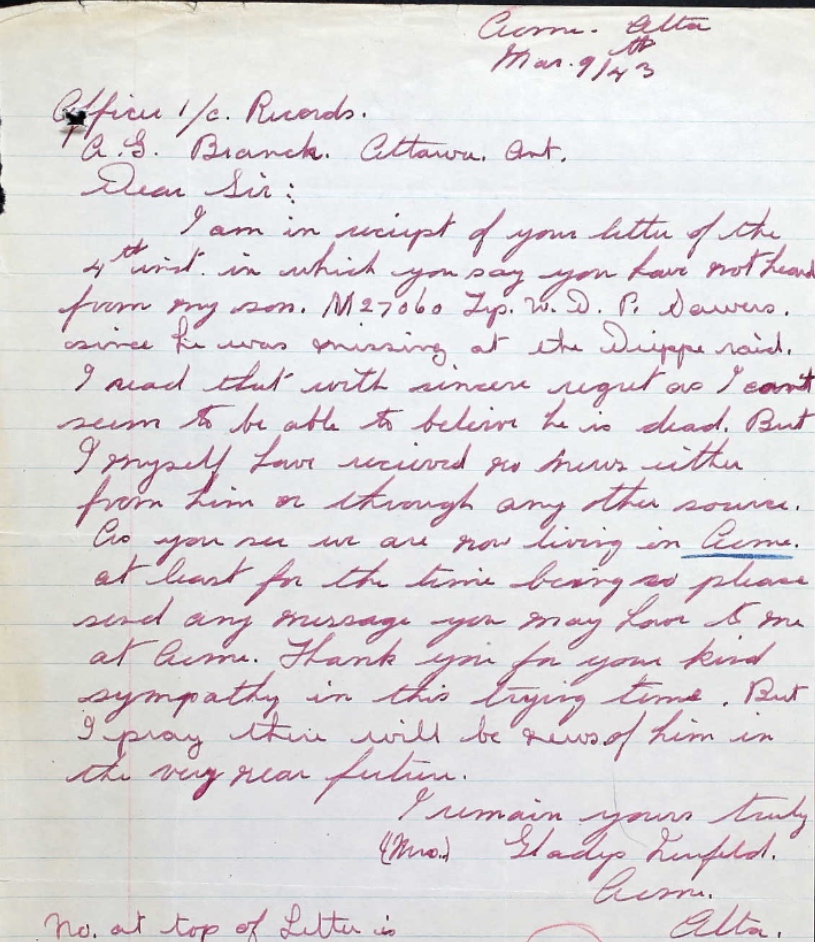 Acme. Alta
Mar. 9th/43
Officer i/c. Records.
A. G. Branch. Ottawa. Ont.
Dear Sir:
I am in reciept of your letter of the
4th inst. in which you say you have not heard
from my son. M27060 Tp. W. D. P. Sawers.
since he was missing at the Dieppe raid.
I read that with sincere regret as I can't
seem to be able to beleive he is dead. But
I myself have recieved no news either
from him or through any other source.
As you see we are now living in Acme.
at least for the time being so please
send any message you may have to me
at Acme. Thank you for your kind
sympathy in this trying time. But
I pray there will be news of him in
the very near future.
I remain yours truly
(Mrs.) Gladys Neufeld.
Acme.
Alta.
No. at top of Letter is